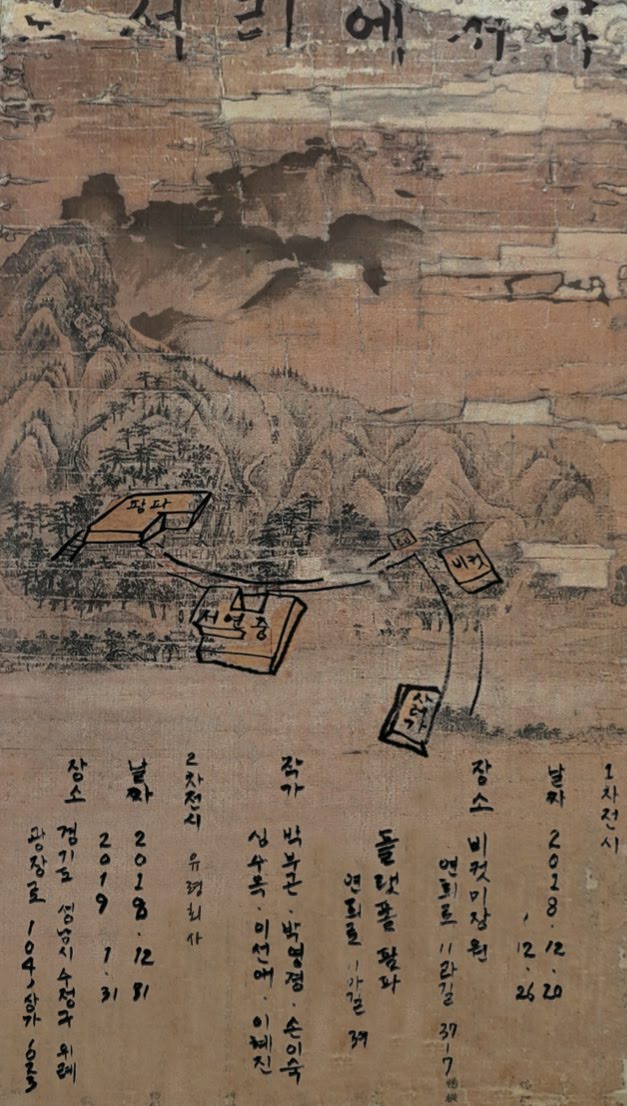 서리에서
팡파
비컷
서연중
사러가
1차전시
날짜 2018.12.20
.12.26
장소 비컷미장원
연희로 11라길 37-7
돌랫폼 팜파
연희로 11가길 39
작가 박부곤.박영경.손이숙
심수옥.이선애.이혜진
2차전시 유령회사
날짜 2018.12 31
2019 1.31
장소 경기도 성남시 수정구 위례
광장로 104, 상가